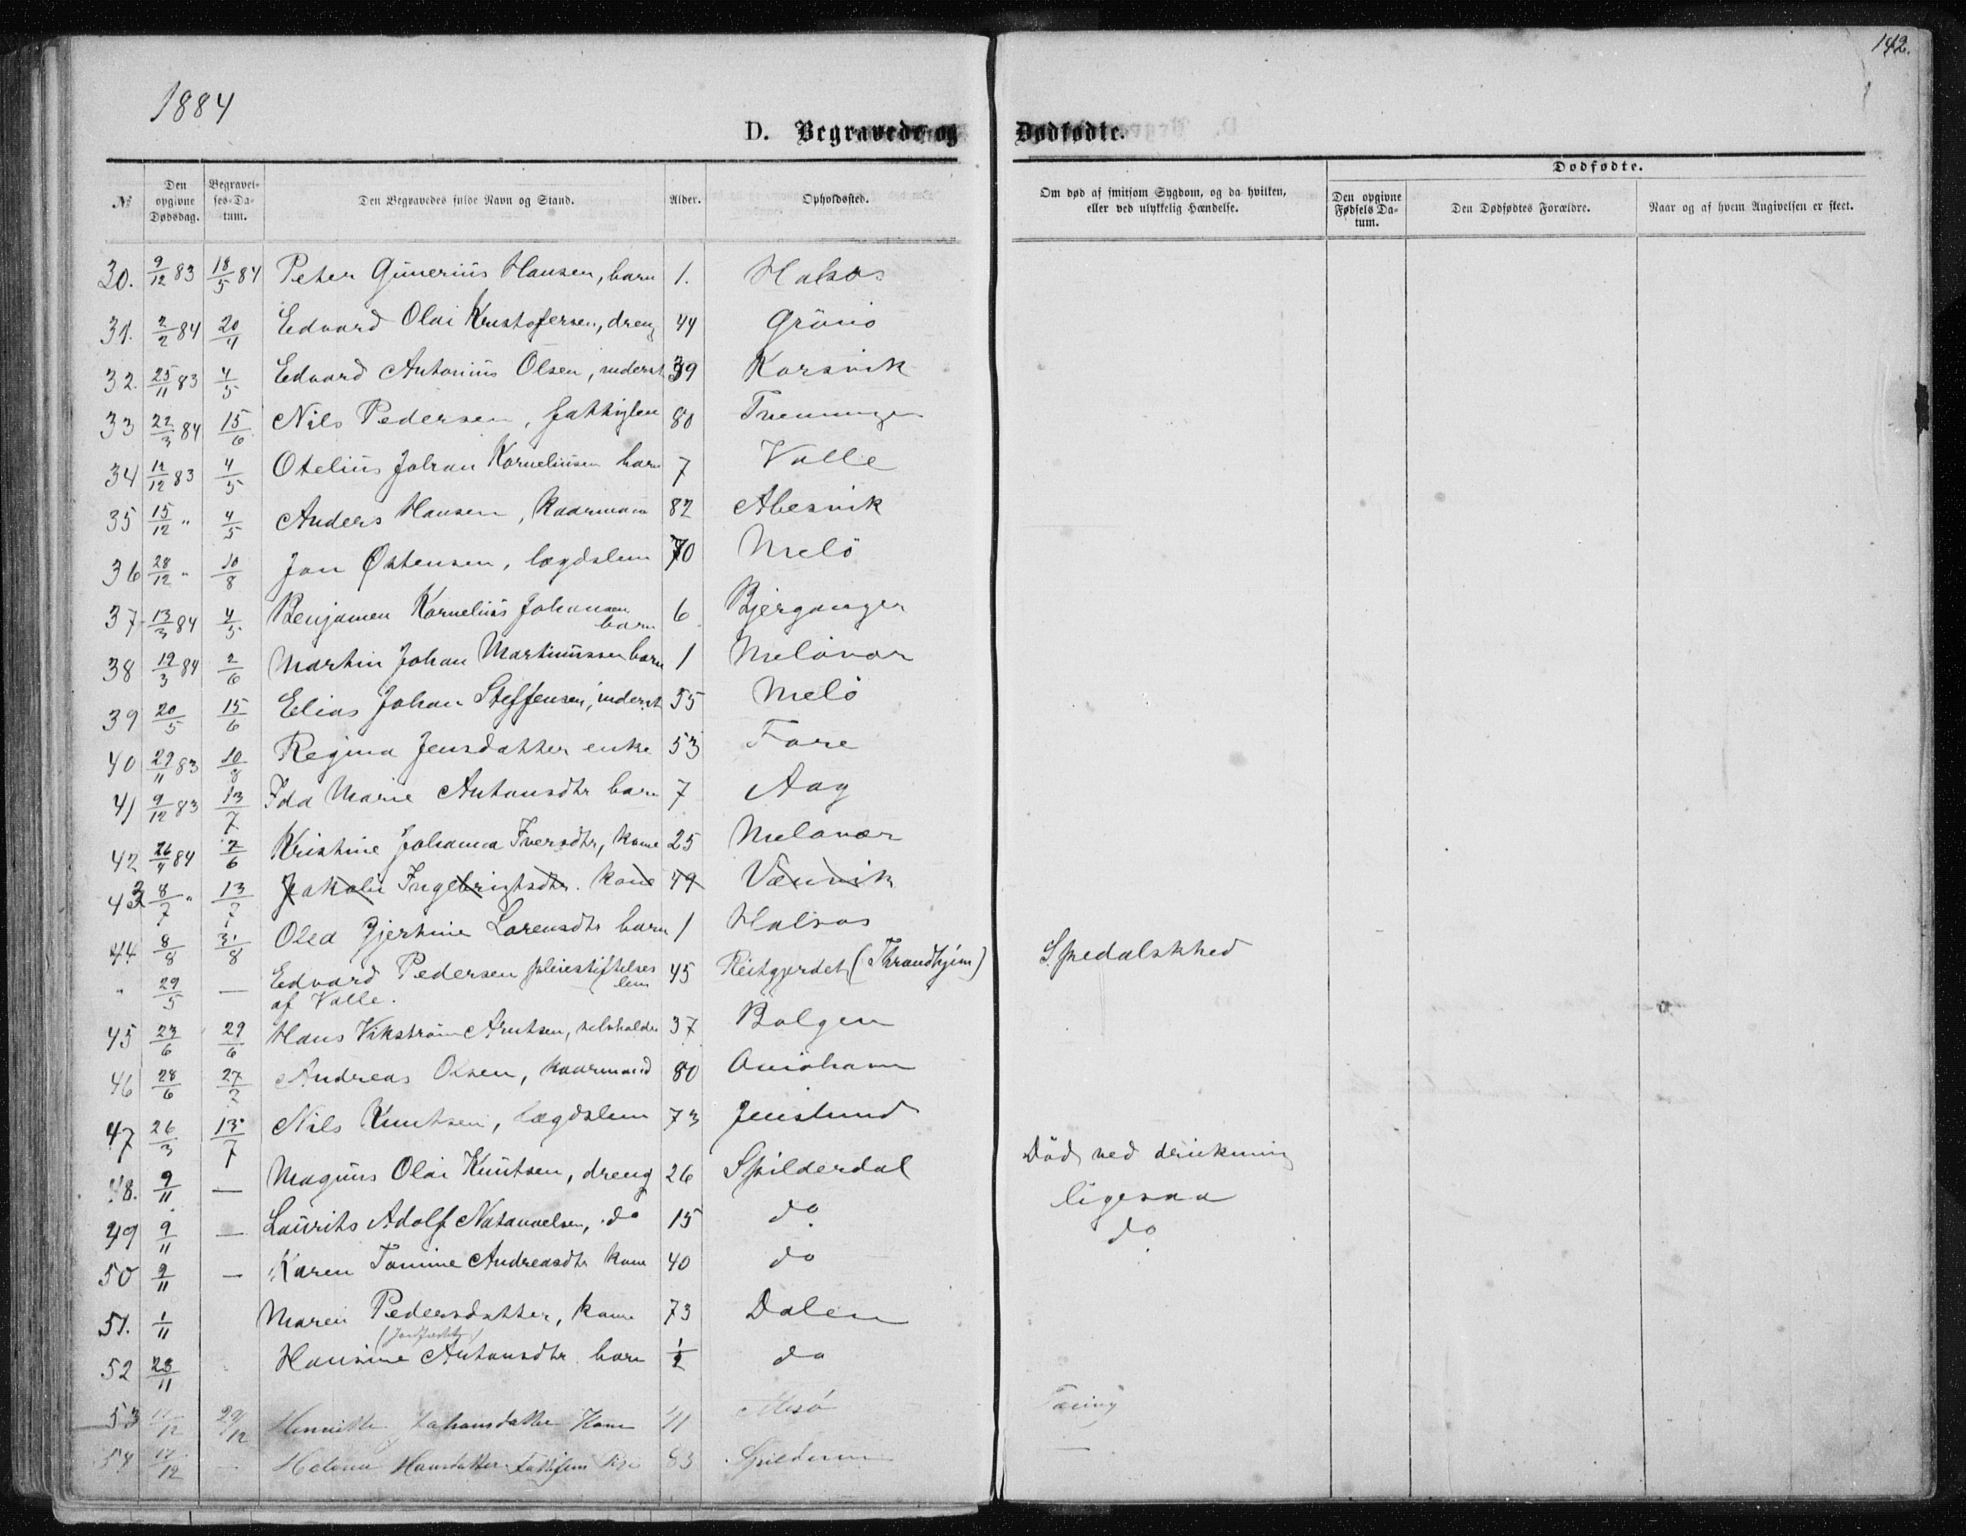 142.
1884
D. Begravede og Dødfødte.
№ Den opgivne Dødsdag. Begravelses-Datum. Den Begravedes fulde Navn og Stand. Alder. Opholdssted. Om død af smitsom Sygdom, og da hvilken, eller ved ulykkelig Hændelse. Dødfødte. Den opgivne Fødsels Datum. Den Dødfødtes Forældre. Naar og af hvem Angivelsen er skeet.
30. 9/12 83 18/5 84 Peter Gunerius Hansen, barn 1. Halsos
31. 2/2 84 20/4 Edvard Olai Kristofersen, dreng 44 Grönö
32. 25/11 83 4/5 Edvard Antonius Olsen, inderst 39 Korsvik
33 22/3 84 15/6 Nils Pedersen, fattiglem 80
34 12/12 83 4/5 Otelius Johan Korneliussen barn 7 Valle
35 15/12 " 4/5 Anders Hansen, Kaarmand 82 Abesvik
36 28/12 " 10/8 Jon Østensen, lægdslem 70 Melö
37 13/3 84 4/5 Benjamen Kornelius Johansen barn 6 Bjergangen
38 19/3 84 2/6 Martin Johan Martinussen barn 1 Melövær
39 20/5 15/6 Elias Johan Steffensen, inderst 55 Melö
40 29/11 83 10/8 Regina Jensdatter enke 53 Fore
41 9/12 83 13/7 Ida Marie Antonsdtr barn 7 Aag
42 26/4 84 2/6 Kristine Johanna Iversdtr, kone 25 Melövær
43 8/7 " 13/7 Jakolie Ingebrigtsdtr. kone 49 Vænvik
44. 8/8 31/8 Olea Gjertine Lorensdtr barn 1 Halsos
" 29/5 — Edvard Pedersen pleiestiftelses lem af Valle. 45 Reitgjerdet (Throndhjem) Spedalskhed
45 23/6 29/6 Hans Vikström Arntsen, selvholder 37 Bolgen
46 28/6 27/7 Andreas Olsen, kaarmand 80
47 26/3 13/7 Nils Knutsen, lægdslem 73 Jenslund
48. 9/11 — Magnus Olai Knutsen, dreng 26 Spilderdal Död ved drukning
49 9/11 — Laurits Adolf Natanaelsen, do 15 do ligesaa
50 9/11 — Karen Tomine Andreasdtr kone 40 do do
51. 1/11 Maren Pedersdatter, kone 73 Dalen
52 23/11 Hansine Antonsdtr. barn 1/2 do
53 29/12 Henriette Johansdatter Kone 41 Mesö Tæring
54 17/12 — Helena Hansdatter Fattiglem Pige 83